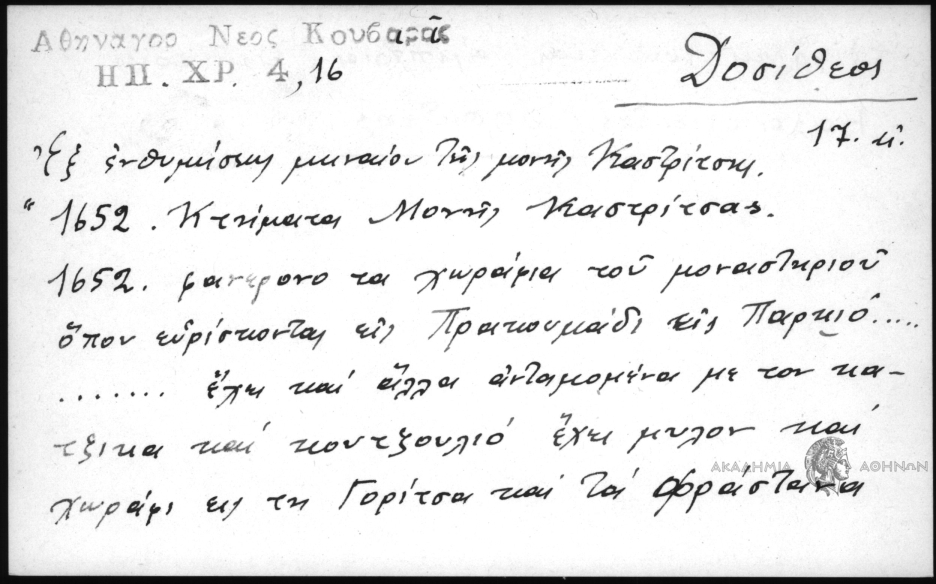 Αθηναγορ Νεος Κουβαρᾶς
ΗΠ. ΧΡ. 4, 16
Δοσίθεος
17. αἰ.
Ἐξ ἐνθυμίσεως μηναίου τῆς μονῆς Καστρίτσης.
"1652. Κτήματα Μονῆς Καστρίτσας.
1652. φανερονο τα χωράφια τοῦ μοναστηριοῦ
ὅπου εὑρίσκονται εἰς Πρακουμάδι εἰς Παρκιό.....
....... ἔχει καί ἄλλα ἀνταμομένα με τον κα-
τζικα καί κουτζουλιό ἔχει μυλον καί
χωράφι εις τη Γορίτσα καί τά Φράστανα
ΑΚΑΔΗΜΙΑ ΑΘΗΝΩΝ